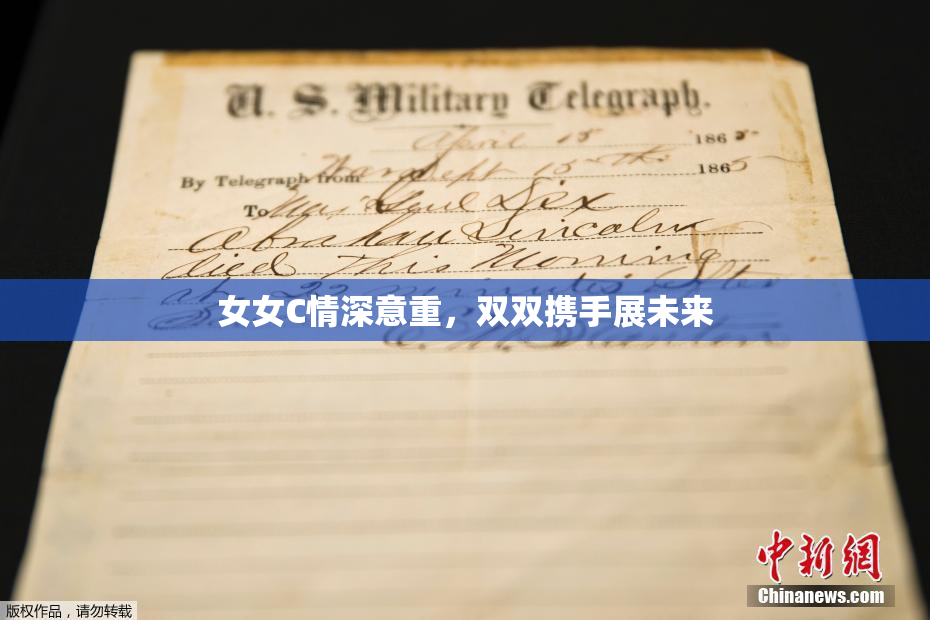 U. S. Military Telegraph.
April 15 1865
By Telegraph from War Dept 15th 1865
To Maj Genl Dix
Abraham Lincoln
died This Morning
at 22 minutes after
女女C情深意重，双双携手展未来
中新網
Chinanews.com
版权作品，请勿转载